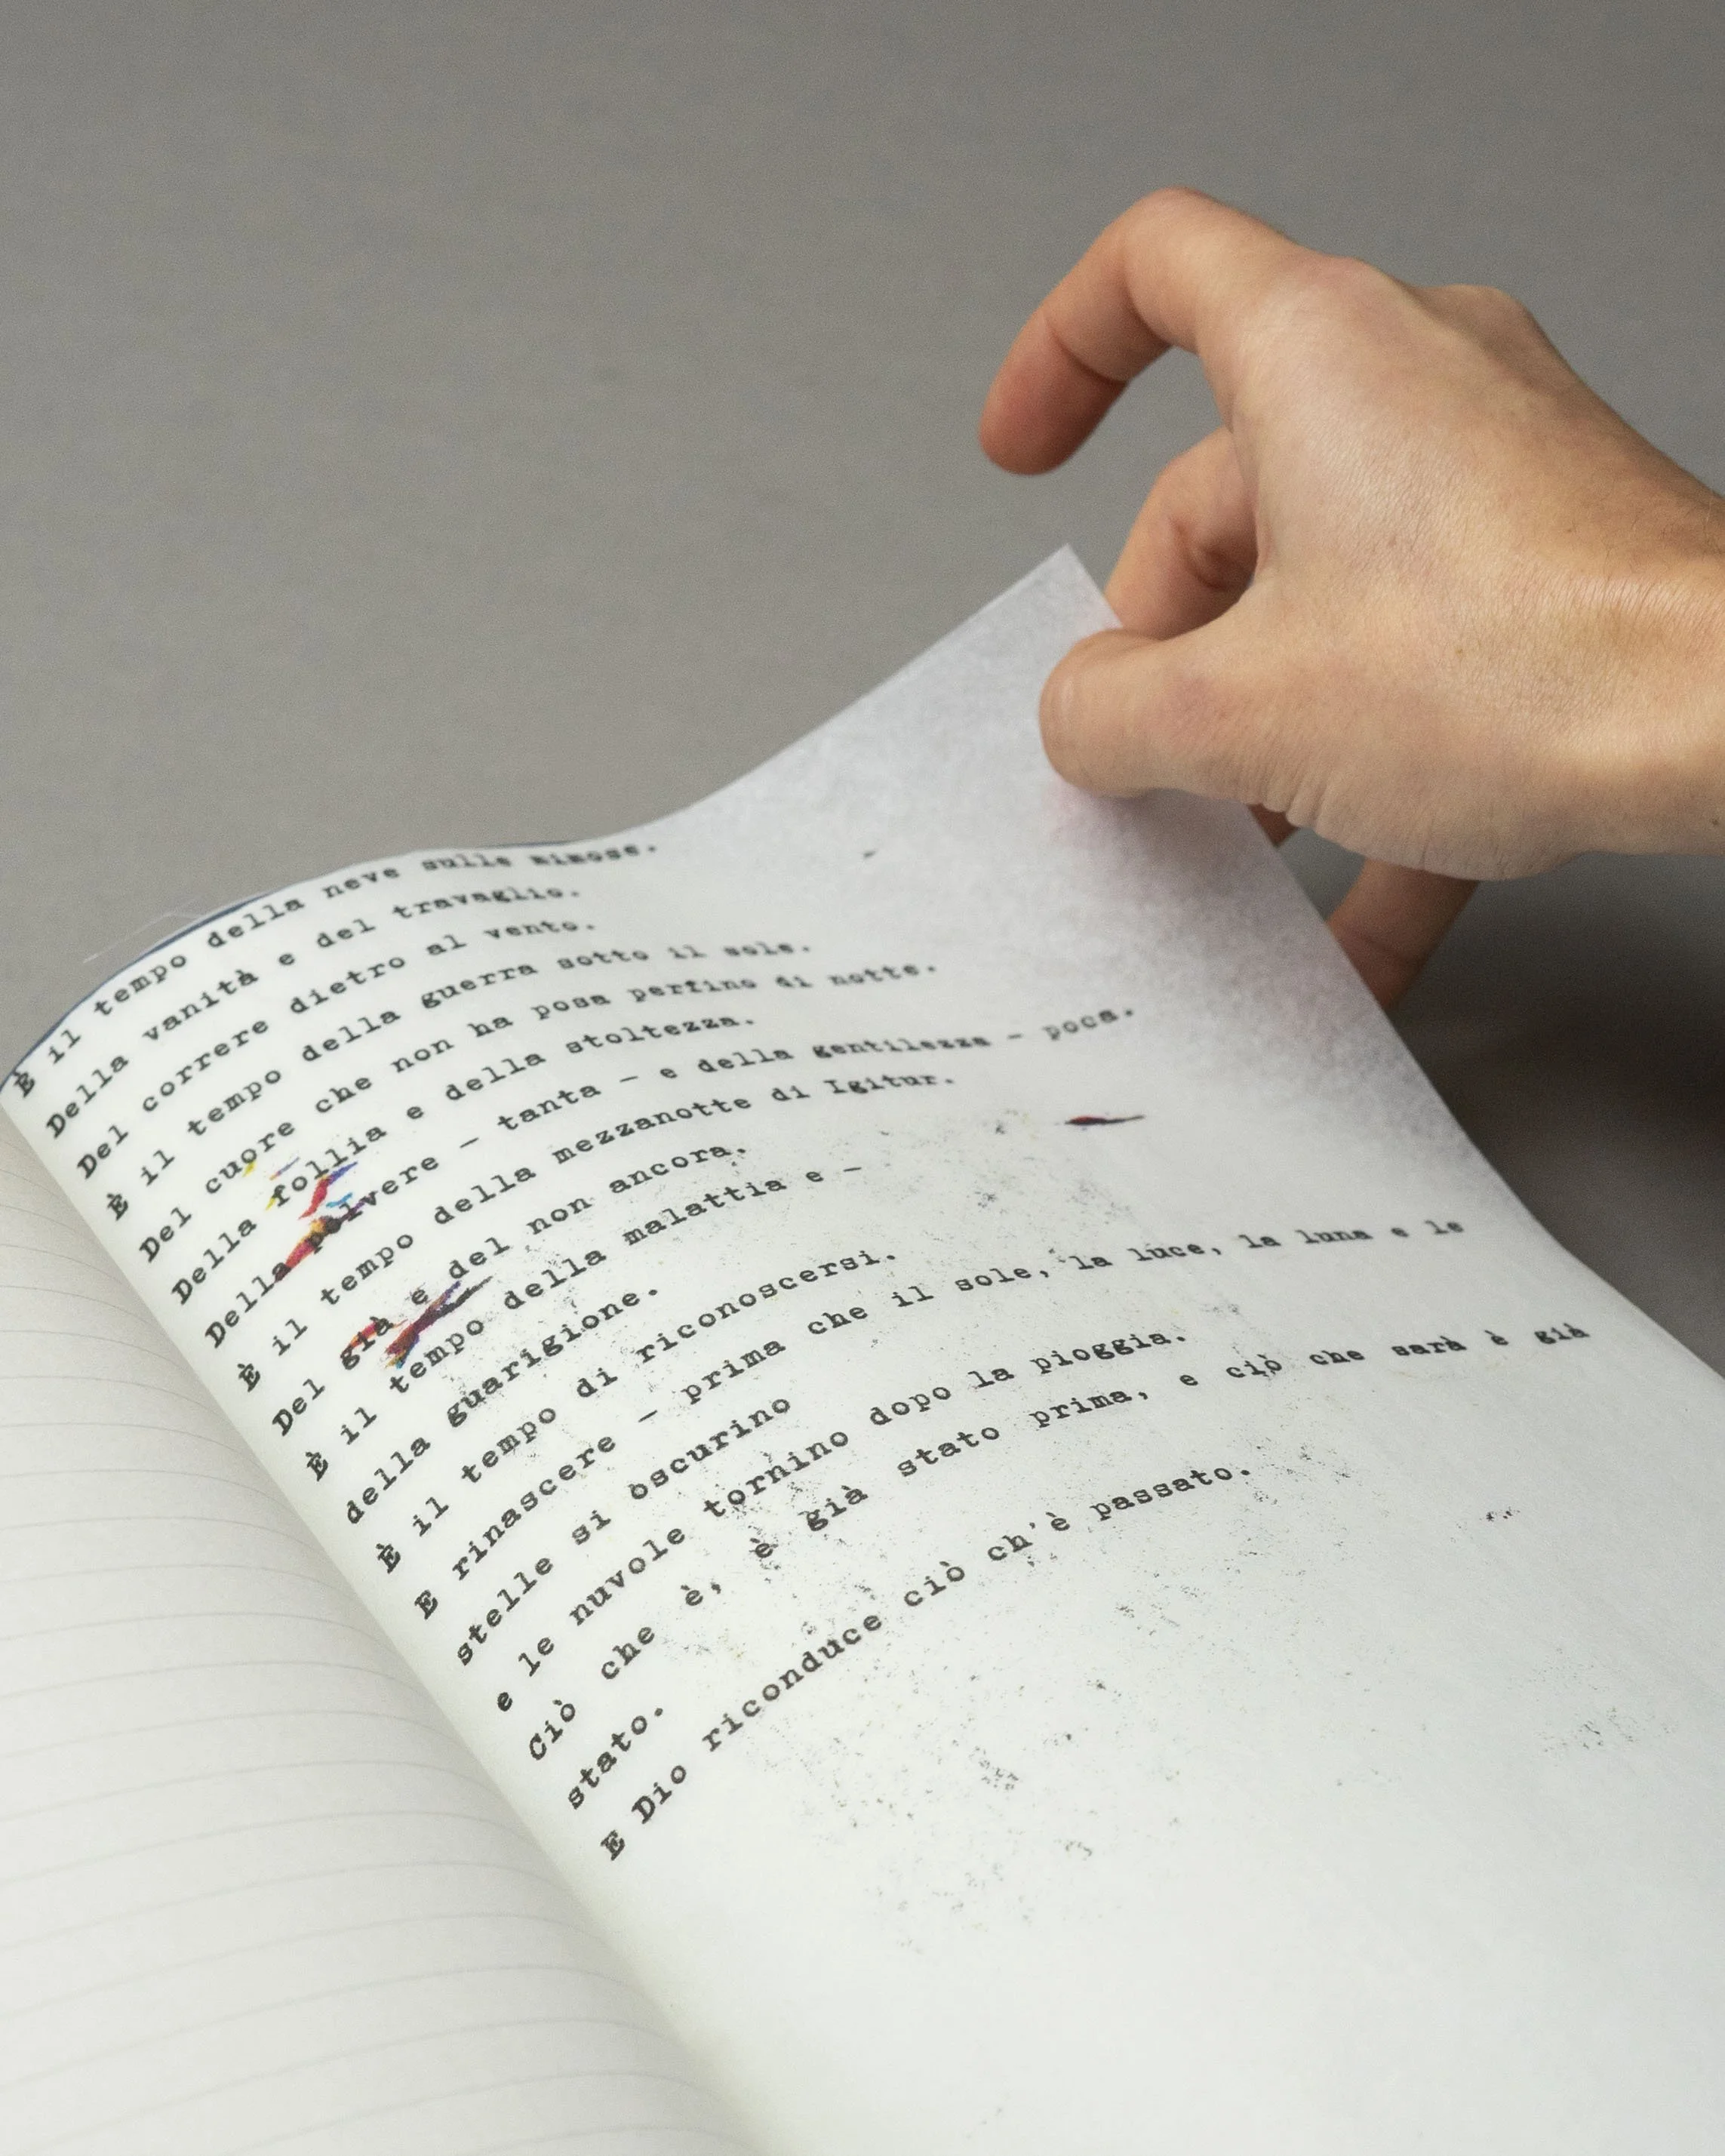 È il tempo della neve sulle mimose.
Della vanità e del travaglio.
Del correre dietro al vento.
È il tempo della guerra sotto il sole.
Del cuore che non ha posa perfino di notte.
Della follia e della stoltezza.
Della polvere - tanta - e della gentilezza - poca.
È il tempo della mezzanotte di Igitur.
Del già e del non ancora.
È il tempo della malattia e -
della guarigione.
È il tempo di riconoscersi.
E rinascere - prima che il sole, la luce, la luna e le
stelle si oscurino
e le nuvole tornino dopo la pioggia.
Ciò che è, è già stato prima, e ciò che sarà è già
stato.
E Dio riconduce ciò ch'è passato.